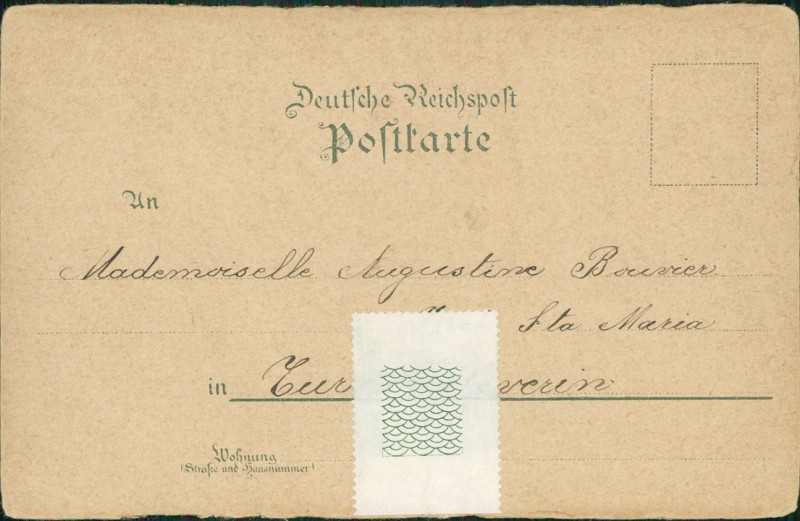 Deutsche Reichspost
Postkarte
An
Mademoiselle Augustine Bouvier
Sta Maria
in
Wohnung
(Straße und Hausnummer)